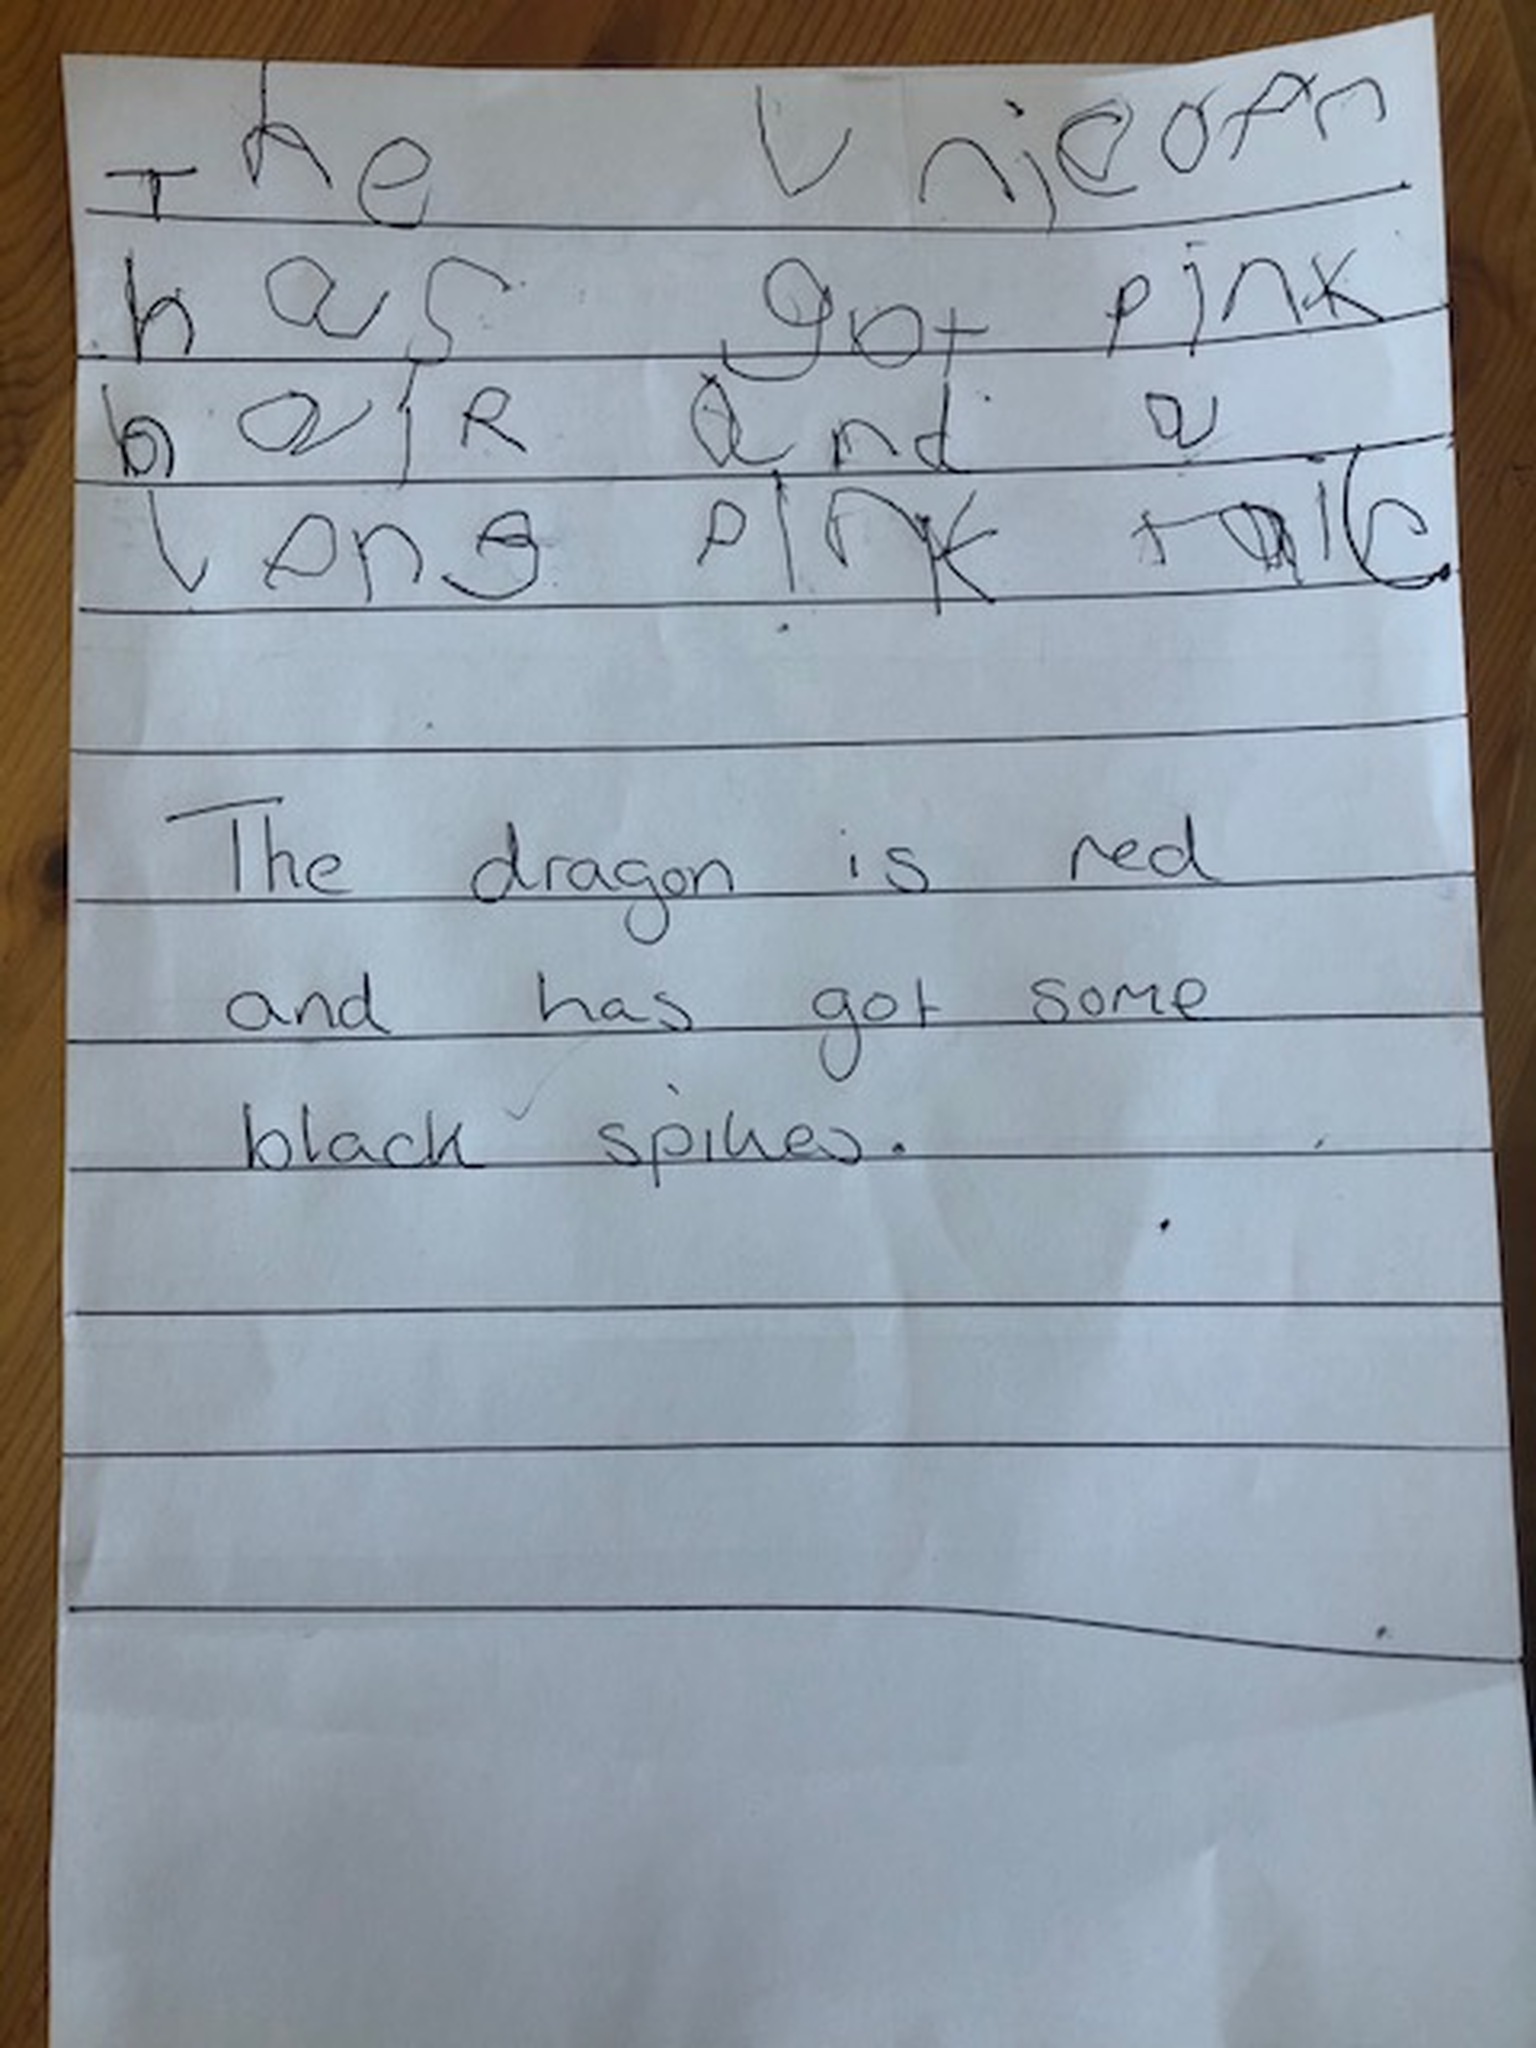 The Unicorn
has got pink
haiR and a
long pink tail.
The dragon is red
and has got some
black spikes.